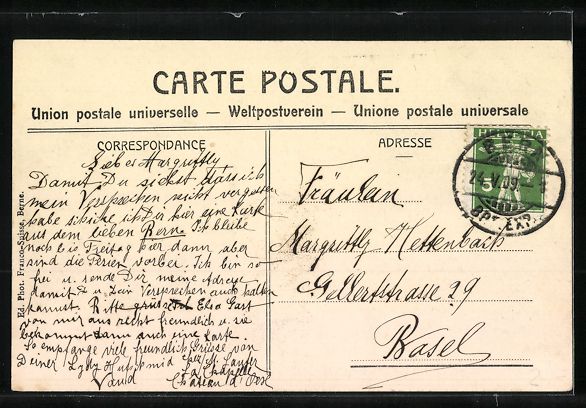 CARTE POSTALE.
Union postale universelle — Weltpostverein — Unione postale universale
CORRESPONDANCE
Liebes Margrittly
Damit Du siehst dass ich
mein Versprechen nicht vergessen
habe schicke ich Dir hier eine Karte
aus dem lieben Berne Ich bleibe
noch bis Freitag hier dann aber
sind die Ferien vorbei. Ich bin so
frei u. sende Dir meine Adresse
damit Du Dein Versprechen auch halten
kannst. Bitte Elsa Gast
von mir aus recht freundlich u. sie
bekommt dann auch eine Karte.
So empfange viele freundlich Grüsse von
Deiner Lydy
La Chapelle
Vaud Château d'Oex
Ed. Phot. Franco-Suisse, Berne.
ADRESSE
HELVETIA
5
BERN
24.V.09.
BRF. EXP.
Fräulein
Margrittly Hettenbach
Gellertstrasse 29
Basel